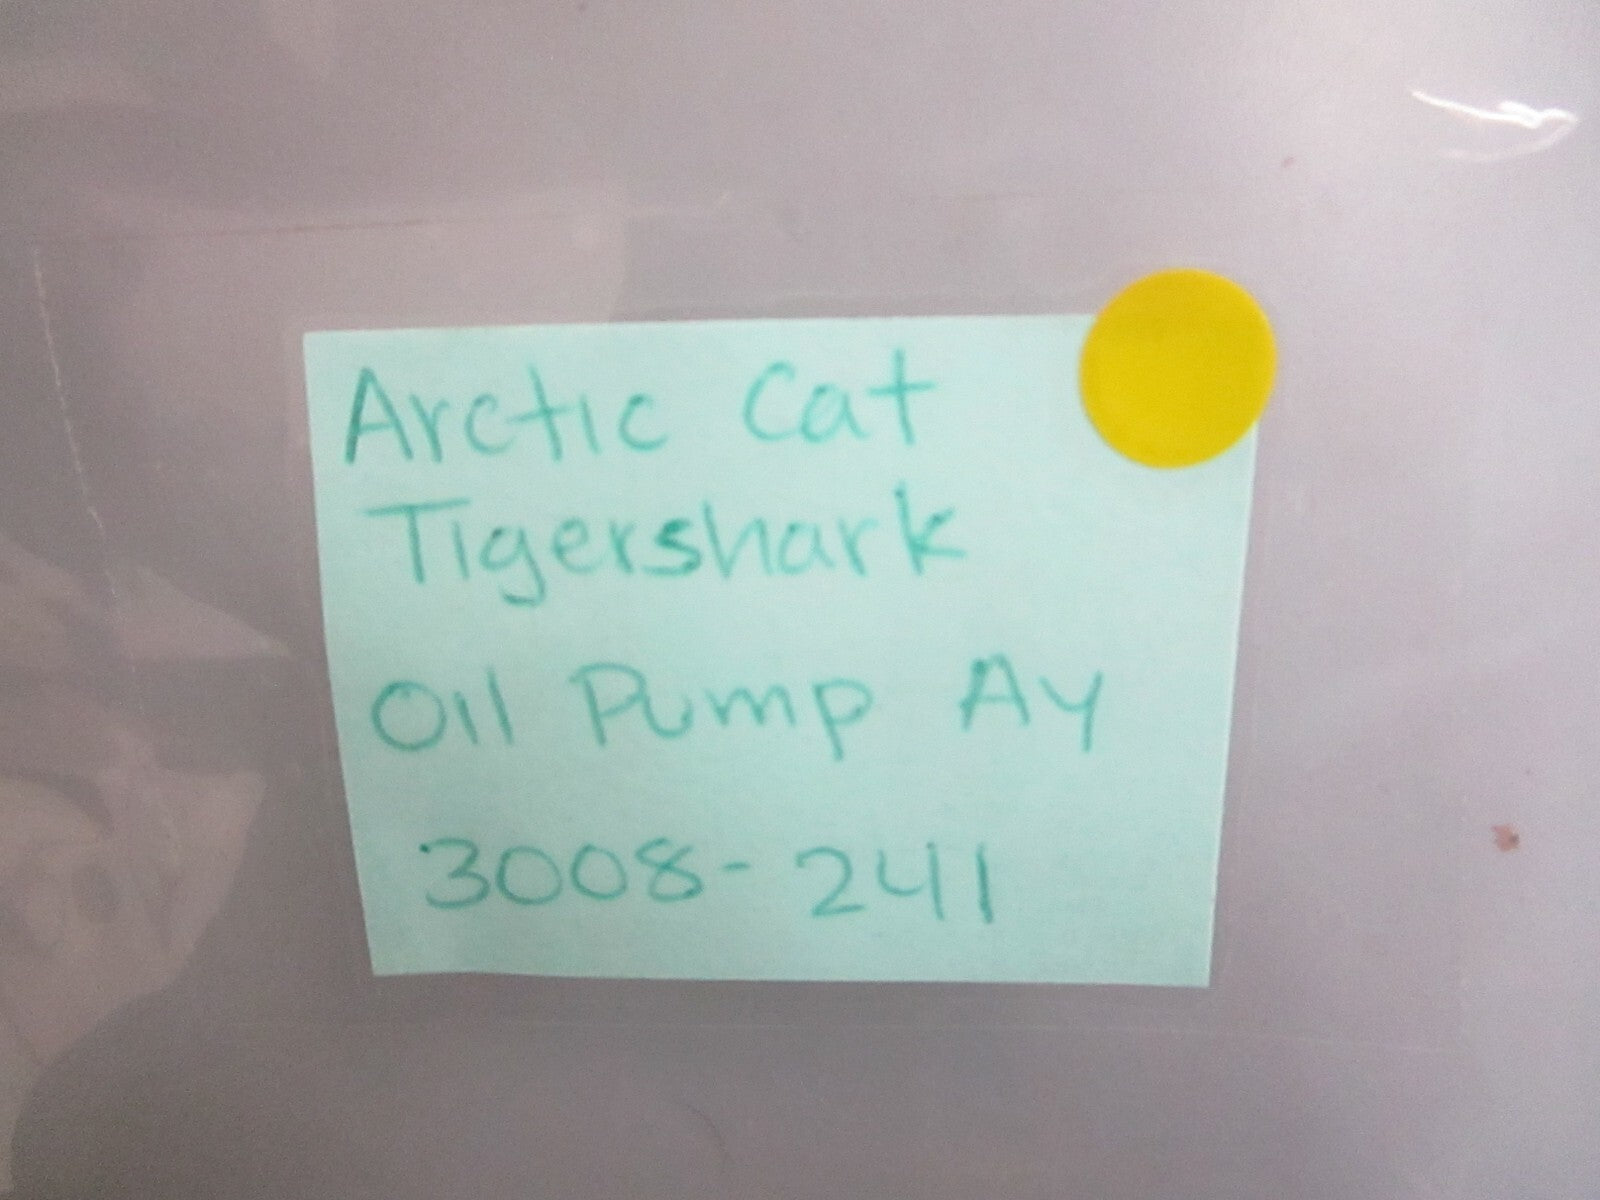 Arctic Cat
Tigershark
Oil Pump Ay
3008-241